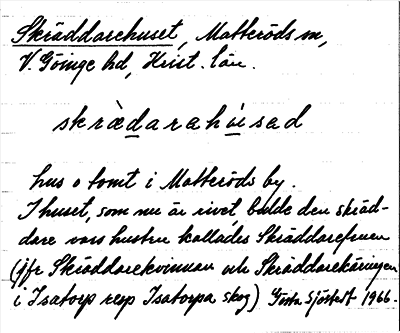 Skräddarehuset, Matteröds sn,
V. Göinge hd, Krist. län.
skrædarahúsad
hus o tomt i Matteröds by.
I huset, som nu är rivet bodde den skräd-
dare vars hustru kallades Skräddarefruen
(jfr Skräddarekvinnan och Skräddarekäringen
i Isatorp resp Isatorpa skog) Gösta Sjöstedt 1966.